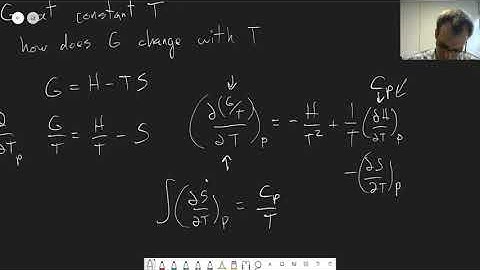 G at constant T
how does G change with T
G = H - TS
∂/∂T_P G/T = H/T - S
(∂(G/T)/∂T)_P = -H/T² + 1/T (∂H/∂T)_P
C_P
-(∂S/∂T)_P
∫(∂S/∂T)_P = C_P/T